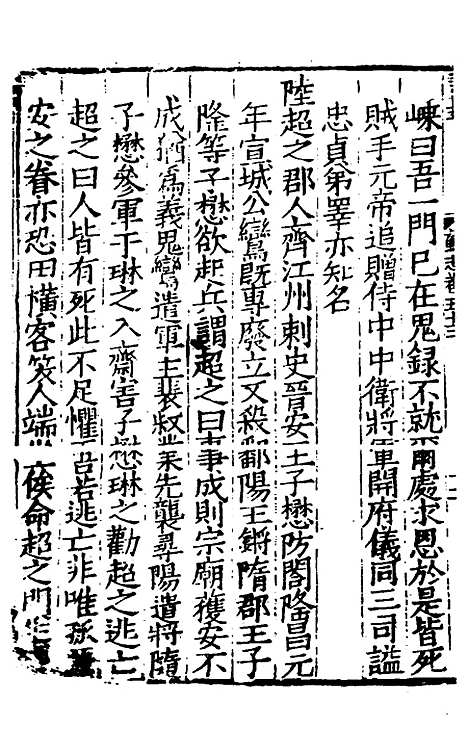 嵊曰吾一門已在鬼録不就爾處求恩於是皆死
賊手元帝追贈侍中中衛將軍開府儀同三司諡
忠貞弟睪亦知名
陸超之郡人齊江州刺史晉安王子懋防閤隆昌元
年宣城公鸞既專廢立又殺鄱陽王鏘隋郡王子
隆等子懋欲起兵謂超之曰事成則宗廟獲安不
成猶為義鬼鸞遣軍主裴叔業先襲尋陽遣將隨
子懋參軍于琳之入齋害子懋琳之勸超之逃亡
超之曰人皆有死此不足懼吾若逃亡非唯孤
安之眷亦恐田橫客笑人端坐俟命超之門生